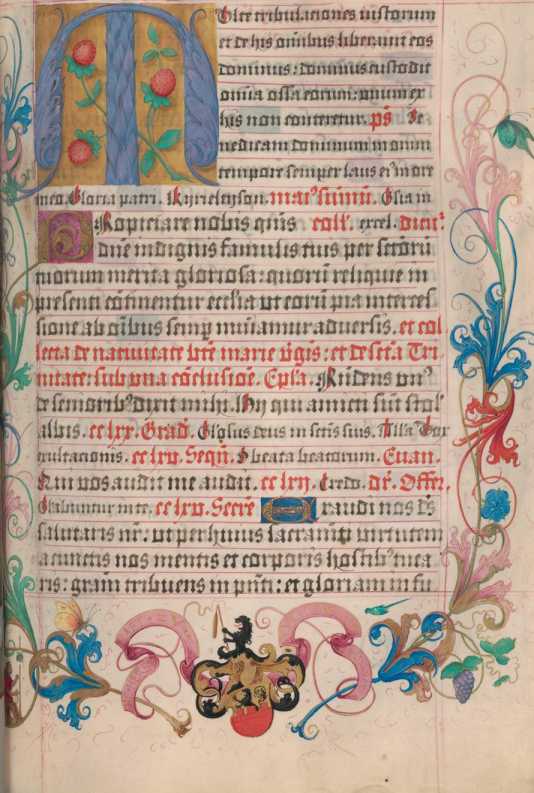 Multe tribulaciones iustorum
et de his omĩbus liberauit eos
dominus: dominus custodit
omĩa ossa eorum: vnum ex
his non conteretur. ps Be
nedicam dominum in omni
tempore semper laus ei' in ore
meo. Gloria patri. Kyrieleyson. Gl'ia in
Propiciare nobis quis coll'. excel. dicit.
dñe indignis famulis tuis per sctõrũ
tuorum merita gloriosa: quorũ reliquie in
presenti cõtinentur ecclia vt eorũ pia interces
sione ab oĩbus semp muniamur aduersis. et col
lecta de natiuitate bte marie vĩgis: et de sctã Tri
nitate: sub vna cõclusiõe. Ep̃la. Rñdens vn'
de seniorib' dixit mihi. Hij qui amicti sũt stol'
albis. cclxx. Grad. Gl'osus deus in sctis suis. All'a Vox
exultacionis. cclxv. Sequ. O beata beatorum. Euan.
Qui vos audit me audit. cclxij. Credo. dr. Offer.
Gl'abuntur in te. cclxv. Secre Exaudi nos ds
salutaris nr̃: vt per huius sacramti virtutem
a cunctis nos mentis et corporis hostib' tuea
ris: gram tribuens in pñti: et gloriam in fu